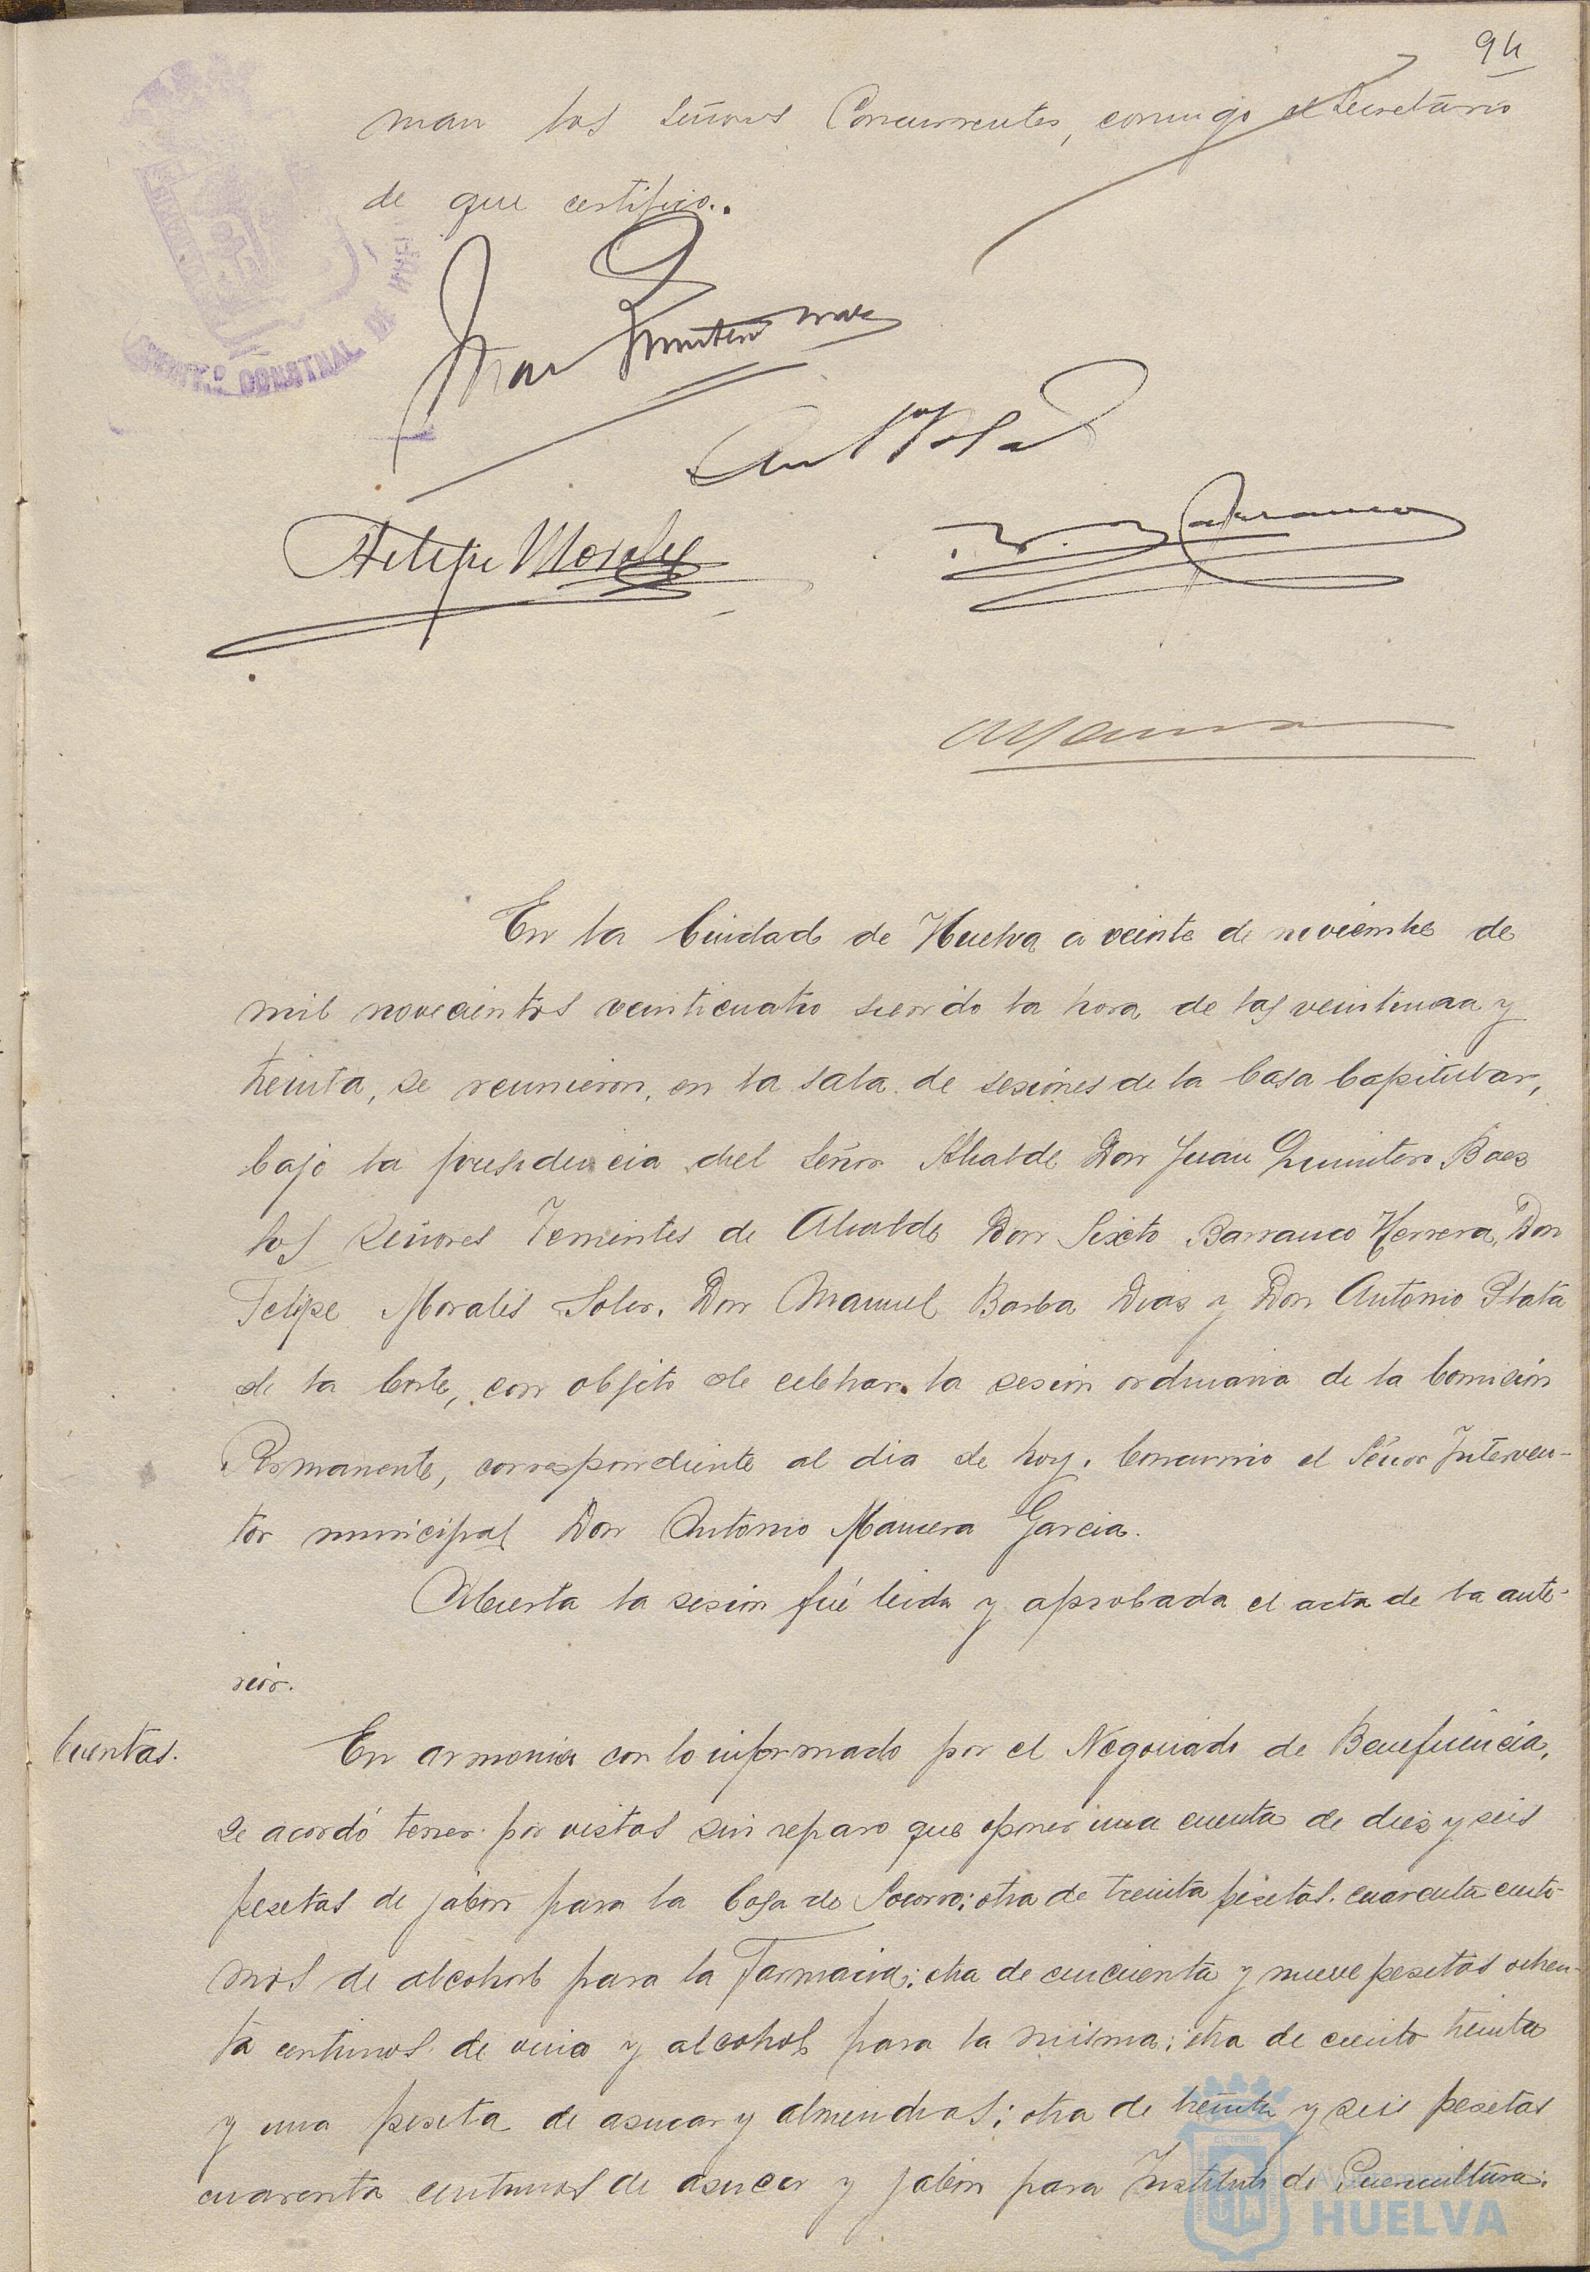 94
man los Señores Concurrentes, conmigo el Secretario
de que certifico.
Juan Quintero Baez
Ant Plata
Felipe Morales
Barranco
En la Ciudad de Huelva a veinte de noviembre de
mil novecientos veinticuatro siendo la hora de las veintiuna y
treinta, se reunieron, en la sala de sesiones de la Casa Capitular,
bajo la presidencia del Señor Alcalde Don Juan Quintero Baez
los Señores Tenientes de Alcalde Don Sixto Barranco Herrera, Don
Felipe Morales Soler, Don Manuel Barba Diaz y Don Antonio Plata
de la Corte, con objeto de celebrar la sesion ordinaria de la Comision
Permanente, correspondiente al dia de hoy. Concurrio el Señor Interven-
tor municipal Don Antonio Mancera Garcia.
Abierta la sesion fué leida y aprobada el acta de la ante-
rior.
Cuentas.
En armonia con lo informado por el Negociado de Beneficencia,
se acordó tener por vistas sin reparo que oponer una cuenta de diez y seis
pesetas de jabon para la Casa de Socorro; otra de treinta pesetas cuarenta centi-
mos de alcohol para la Farmacia; otra de cincuenta y nueve pesetas ochen-
ta centimos de vino y alcohol para la misma; otra de ciento treinta
y una peseta de asucar y almendras; otra de treinta y seis pesetas
cuarenta centimos de asucar y jabon para Instituto de Puericultura;
AYUNTAMIENTO DE
HUELVA